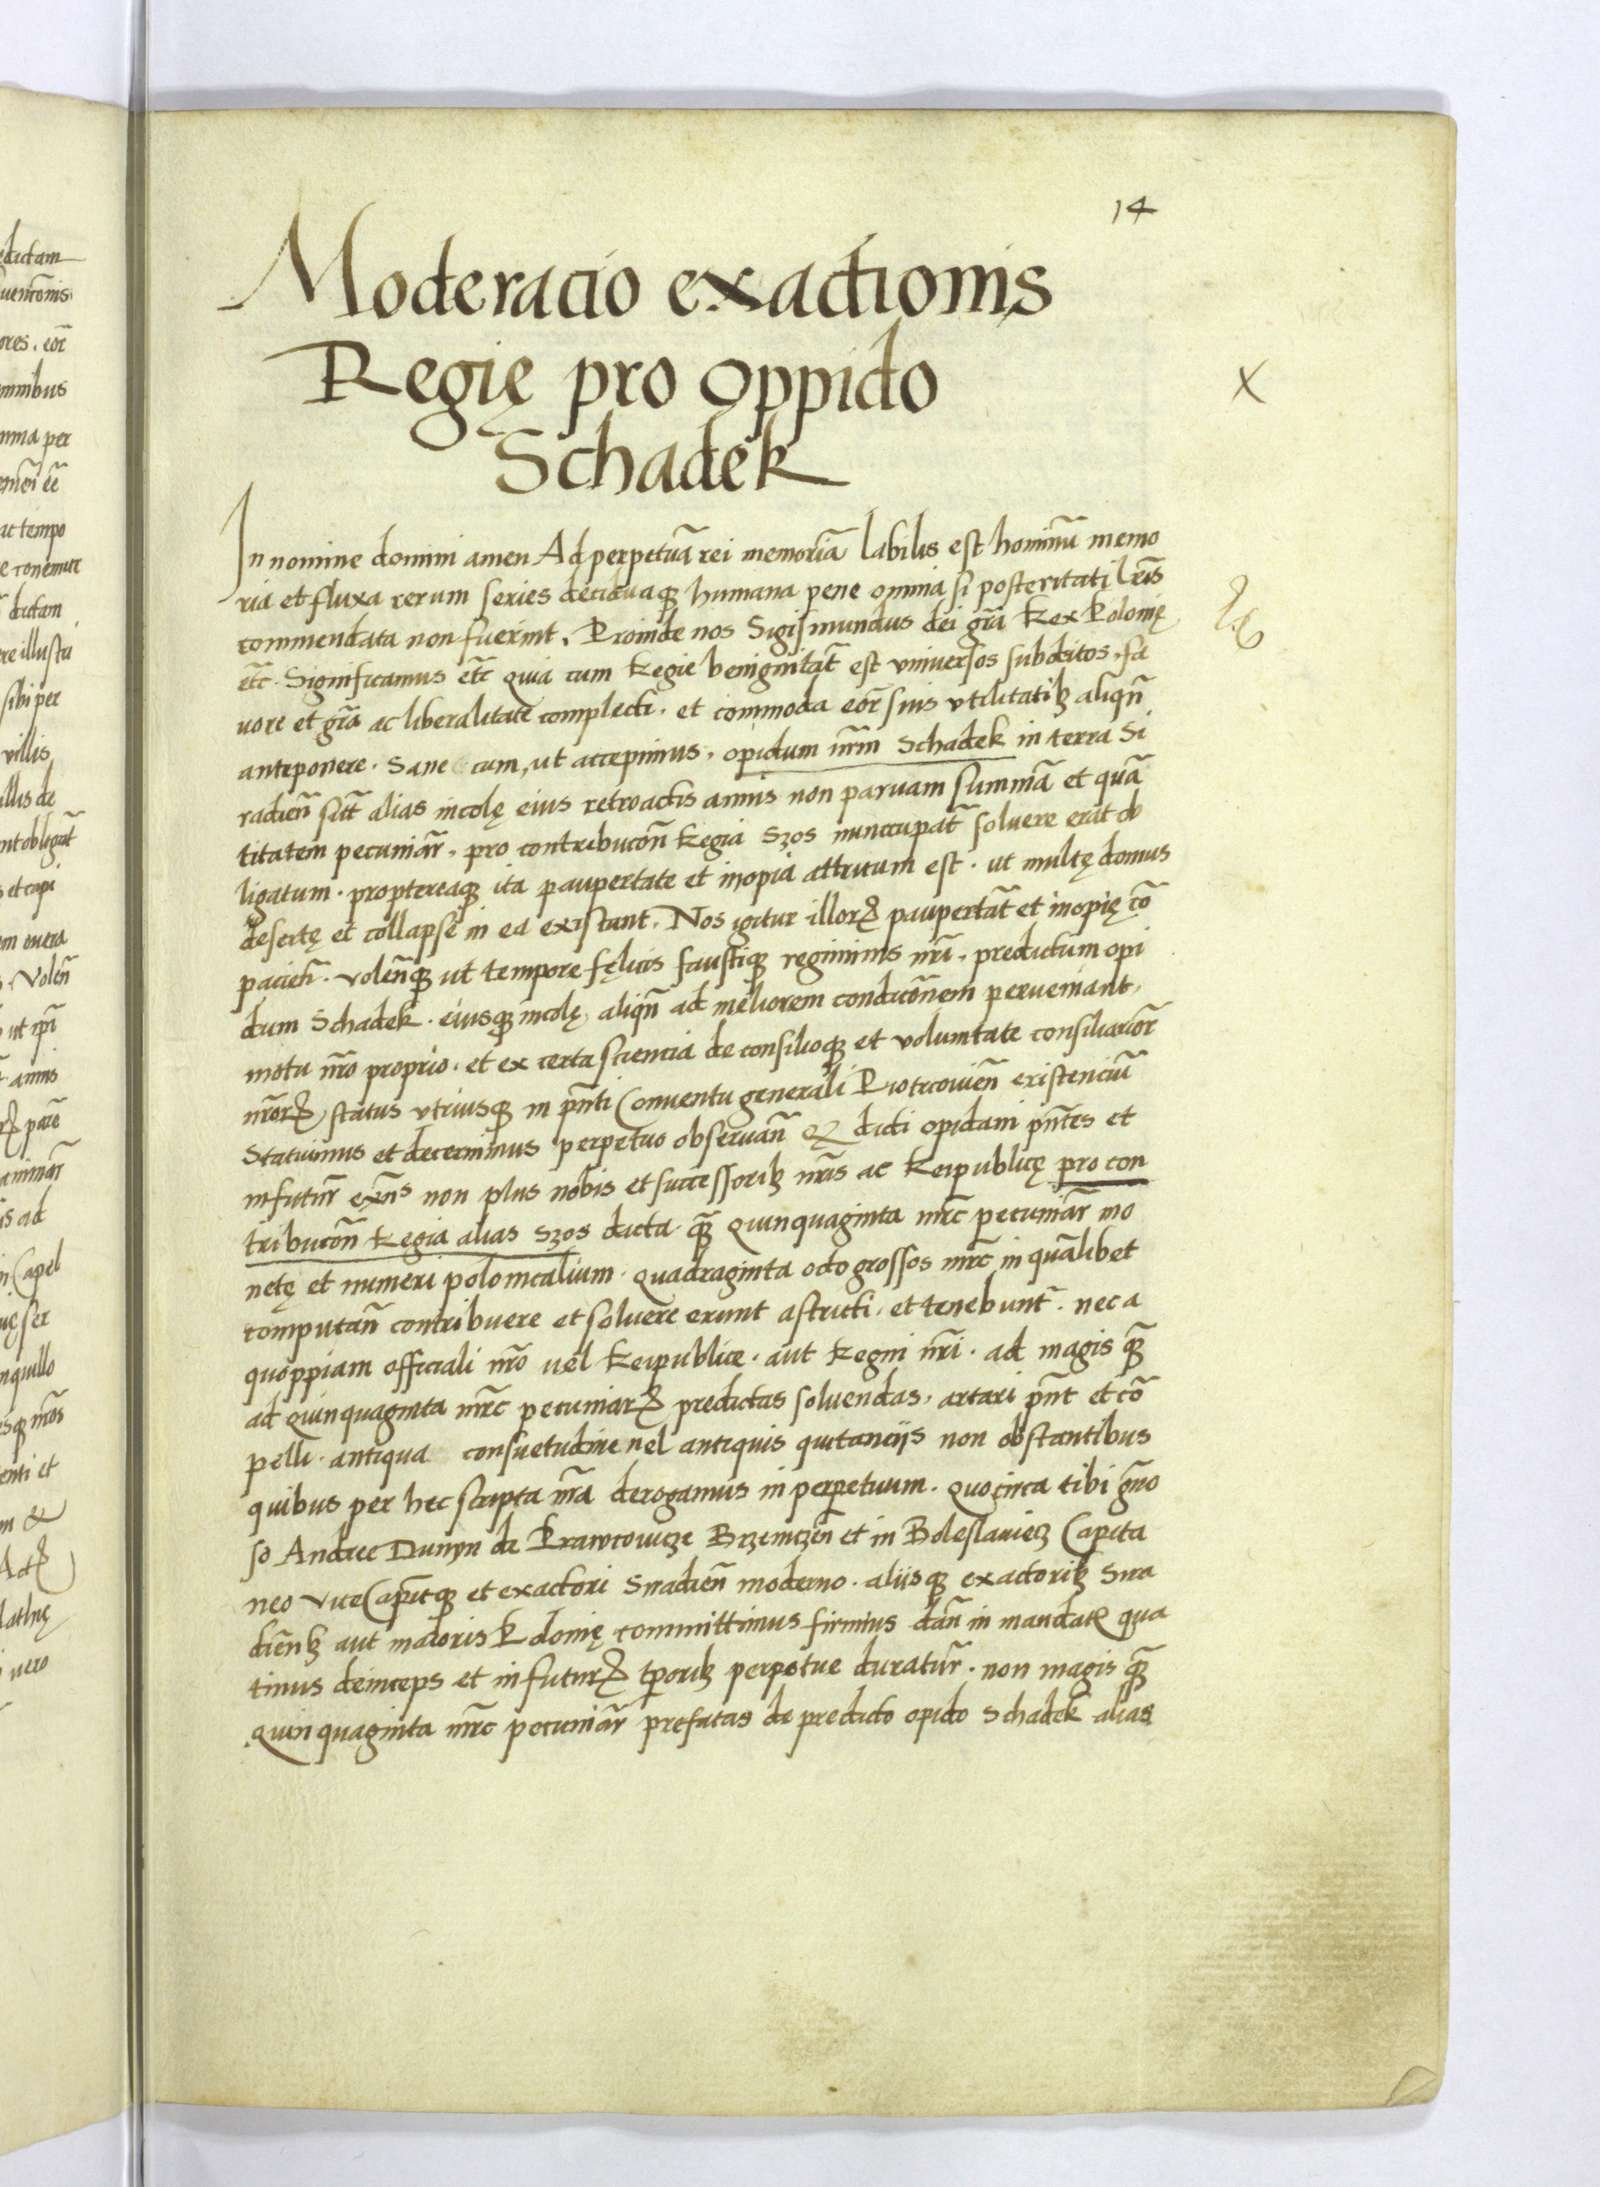 14
Moderacio exactionis
Regię pro oppido
Schadek
In nomine domini amen Ad perpetuā rei memoriā labilis est hominū memo
ria et fluxa rerum series deciduaqꝫ humana pene omnia si posteritati lr̃is
commendata non fuerint. Proinde nos Sigismundus dei gr̃a Rex Polonię
etc̃. Significamus etc̃ quia cum Regie benignitat̃ est universos subditos, fa
vore et gr̃a ac liberalitate complecti. et commoda eor̃ suis vtilitatibꝫ aliqñ
anteponere. Sane cum, ut accepimus, opidum nr̃m Schadek in terra Si
radien̄ sit̃ alias incolę eius retroactis annis non parvam summā et quā
titatem pecuniar̃, pro contribucōn Regia Szos nunccupat̃ solvere erat ob
ligatum. proptereaqꝫ ita paupertate et inopia attritum est. ut multę domus
desertę et collapse in ea existant. Nos igitur illorꝝ paupertat̃ et inopię cō
pacien̄. volen̄qꝫ ut tempore fęlicis faustiqꝫ regiminis nr̃i, predictum opi
dum Schadek. eiusqꝫ incolę, aliqñ ad meliorem condicōnem perveniant,
motu nr̃o proprio. et ex certa sciencia de consilioqꝫ et voluntate consiliarior̃
nr̃orꝝ, status vtriusqꝫ in pñti Conventu generali Piotrcovien̄ existenciū
Statuimus et decernimus perpetuo observan̄ qꝫ dicti opidani pñtes et
in futur̃ exñs non plus nobis et successoribꝫ nr̃is ac Reipublicę pro con
tribucōn Regia alias Szos dicta. qꝫ̃ quinquaginta mr̃c pecuniar̃ mo
netę et numeri polonicalium. quadraginta octo grossos mr̃c in quālibet
computan̄ contribuere et solvere erunt astricti. et tenebunt̃. nec a
quoppiam officiali nr̃o vel Reipublice. aut Regni nr̃i. ad magis qꝫ̃
ad quinquaginta mr̃c pecuniarꝝ predictas solvendas, artari pñt et cō
pelli. antiqua consuetudine vel antiquis quitanciis non obstantibus
quibus per hec scripta nr̃a derogamus in perpetuum. quocirca tibi gñro
so Andree Dunyn de Prawcowicze Brzeniczen̄ et in Boleslaviecz Capita
neo viceCapit̃qꝫ et exactori Siradien̄ moderno. aliisqꝫ exactoribꝫ Sira
dien̄bꝫ aut maioris Polonię committimus firmius dan̄ in mandatꝫ qua
tinus deinceps et in futurꝝ tporibꝫ perpetue duratur̃. non magis qꝫ̃
quinquaginta mr̃c pecuniar̃ prefatas de predicto opido Schadek alias